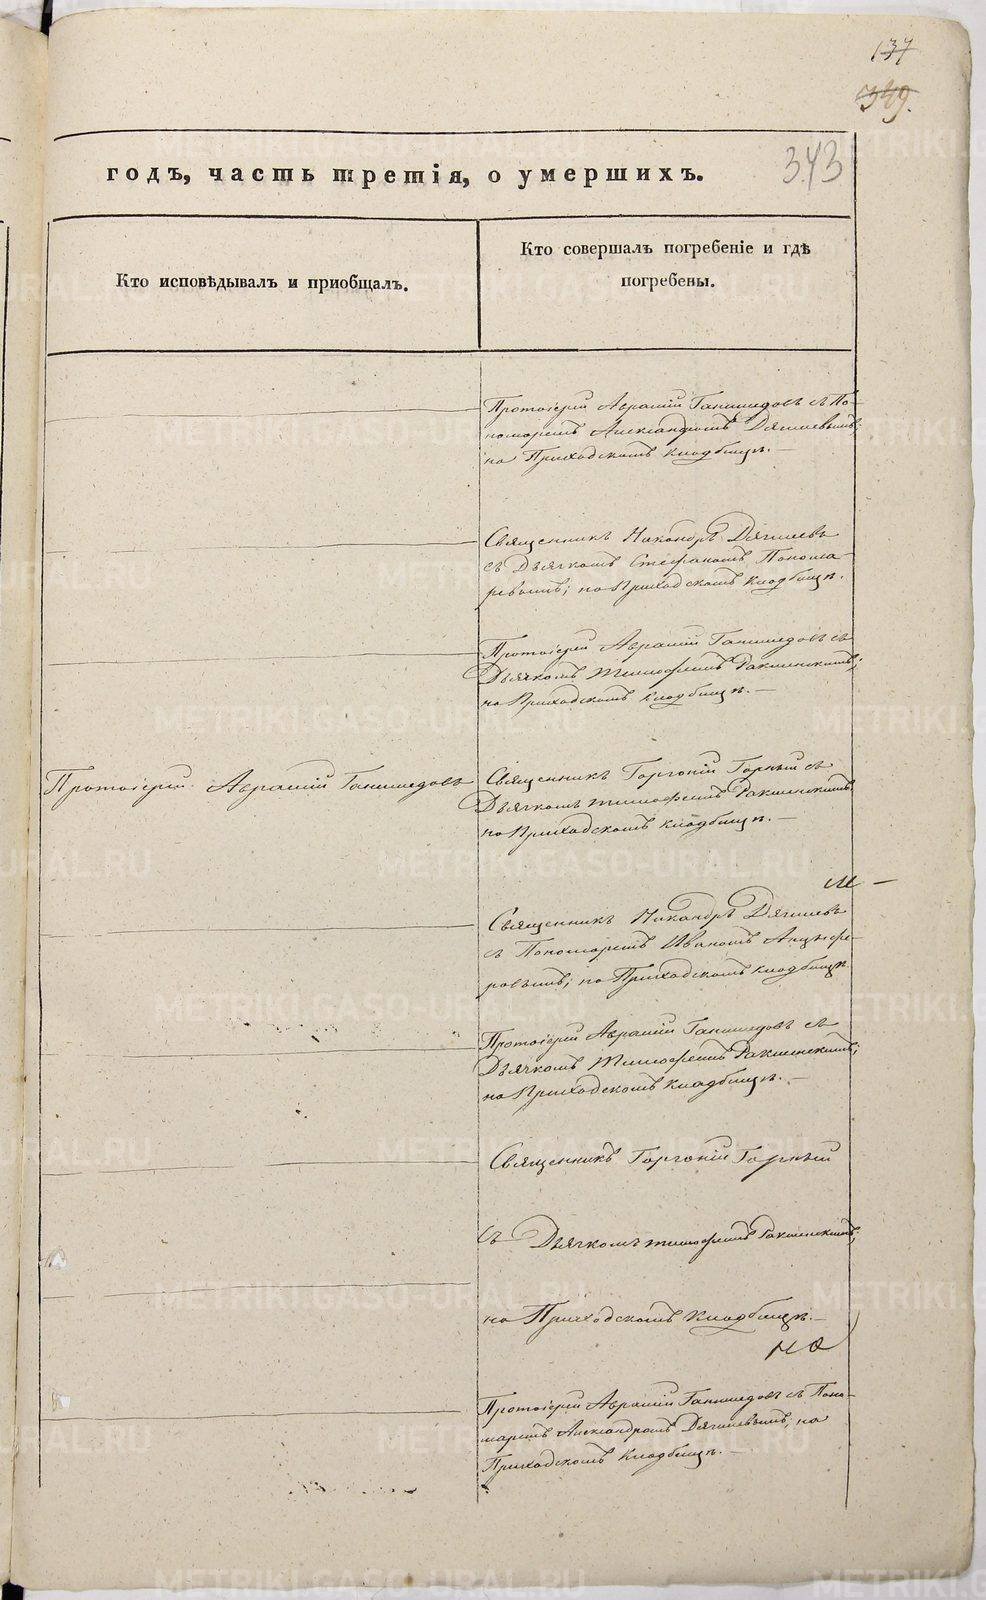 137
349.
343
годъ, часть третія, о умершихъ.
Кто исповѣдывалъ и приобщалъ.
Кто совершалъ погребеніе и гдѣ
погребены.
Протоіерей Аврамій Ганимедовъ съ По-
номаремъ Александромъ Дягилевымъ;
на Приходскомъ кладбищѣ.
Священникъ Никандръ Дягилевъ
съ Дьячкомъ Стефаномъ Понома-
ревымъ; на Приходскомъ кладбищѣ.
Протоіерей Аврамій Ганимедовъ съ
Дьячкомъ Тимофеемъ
на Приходскомъ кладбищѣ.
Протоіерей Аврамій Ганимедовъ
Священникъ Горгоній Горный съ
Дьячкомъ Тимофеемъ
на Приходскомъ кладбищѣ.
Священникъ Никандръ Дягилевъ
съ Пономаремъ Иваномъ Анцыфе-
ровымъ; на Приходскомъ кладбищѣ
Протоіерей Аврамій Ганимедовъ съ
Дьячкомъ Тимофеемъ
на Приходскомъ кладбищѣ.
Священникъ Горгоній Горный
съ Дьячкомъ Тимофеемъ
на Приходскомъ кладбищѣ.
на
Протоіерей Аврамій Ганимедовъ съ Поно-
маремъ Александромъ Дягилевымъ; на
Приходскомъ кладбищѣ.
METRIKI.GASO-URAL.RU